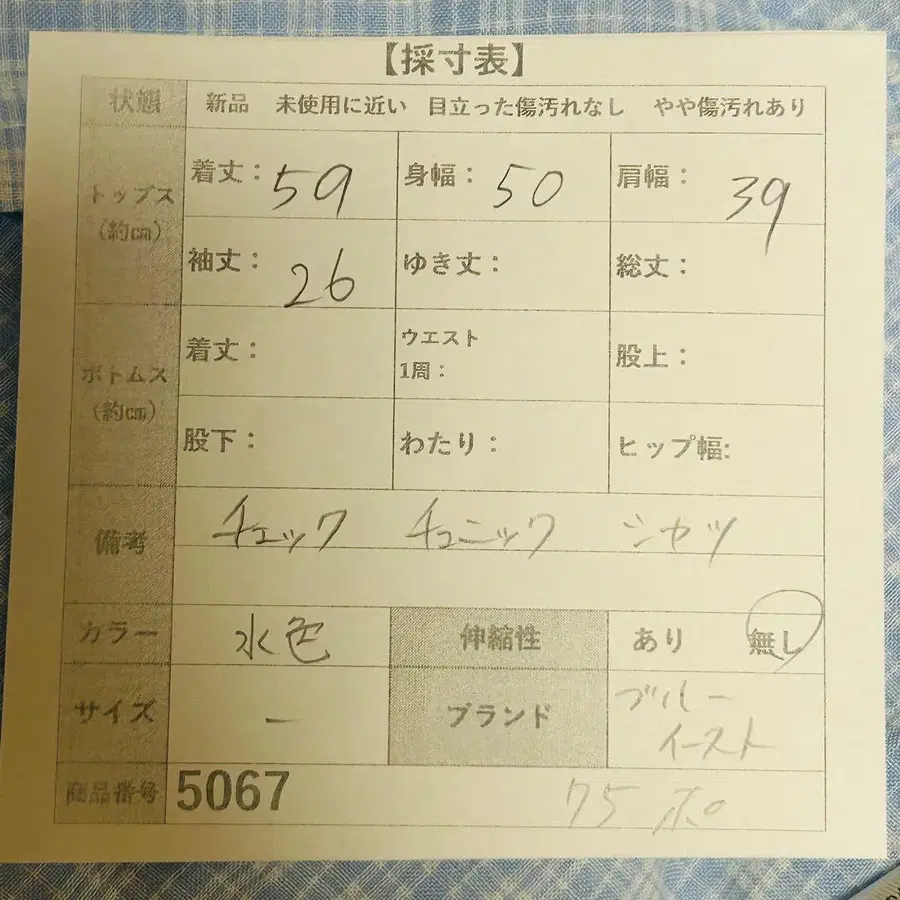 【採寸表】
状態 新品 未使用に近い 目立った傷汚れなし やや傷汚れあり
トップス
(約㎝)
着丈: 59 身幅: 50 肩幅: 39
袖丈: 26 ゆき丈: 総丈:
ボトムス
(約㎝)
着丈: ウエスト
1周: 股上:
股下: わたり: ヒップ幅:
備考 チェック チュニック シャツ
カラー 水色 伸縮性 あり 無し
サイズ ー ブランド ブルー
イースト
商品番号 5067 75 ポ